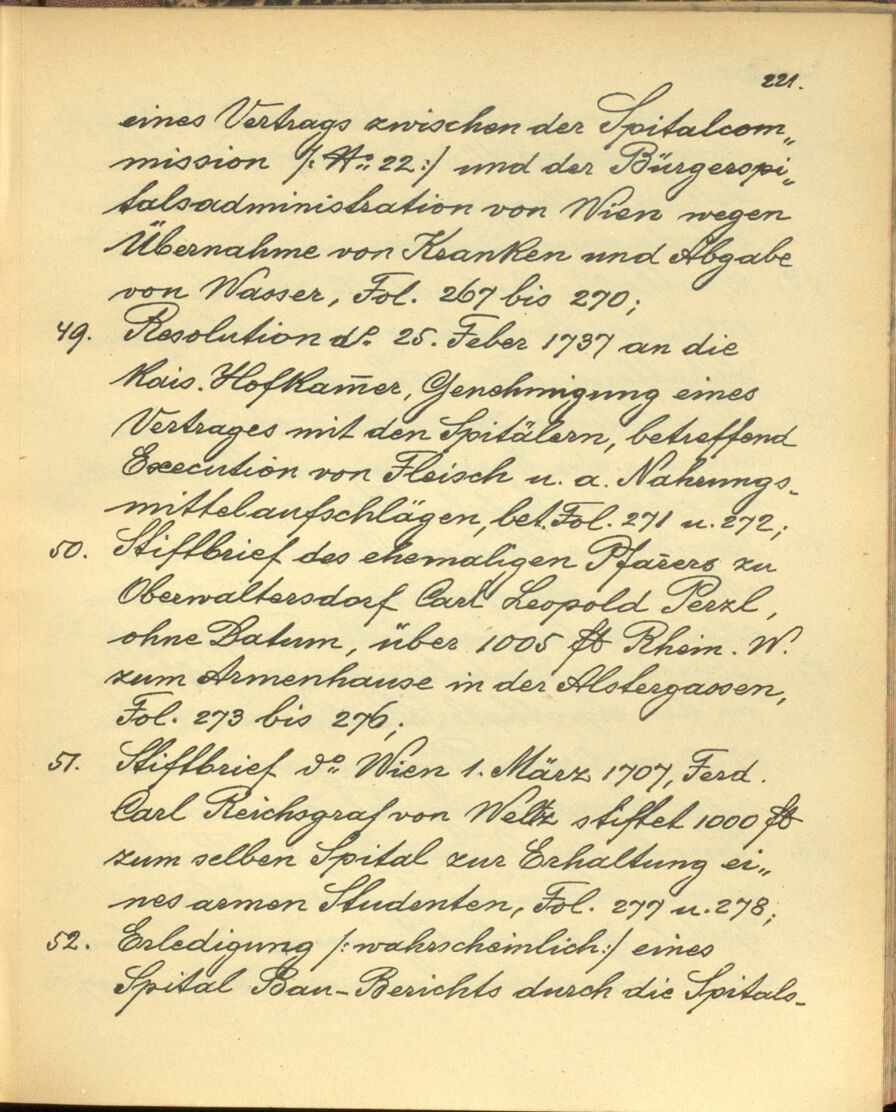 221.
eines Vertrags zwischen der Spitalcom„
mission /: No: 22:/ und der Bürgerspi„
talsadministration von Wien wegen
Übernahme von Kranken und Abgabe
von Wasser, Fol. 267 bis 270;
49. Resolution do: 25. Feber 1737 an die
kais. Hofkam̅er, Genehmigung eines
Vertrages mit den Spitälern, betreffend
Execution von Fleisch u. a. Nahrungs-
mittelaufschlägen, bet. Fol. 271 u. 272;
50. Stiftbrief des ehemaligen Pfar̅ers zu
Oberwaltersdorf Carl Leopold Perzl,
ohne Datum, über 1005 fl Rhein. W.
zum Armenhause in der Alstergassen,
Fol. 273 bis 276;
51. Stiftbrief do: Wien 1. März 1707, Ferd.
Carl Reichsgraf von Weltz stiftet 1000 fl
zum selben Spital zur Erhaltung ei„
nes armen Studenten, Fol. 277 u. 278;
52. Erledigung /: wahrscheinlich:/ eines
Spital Bau-Berichts durch die Spitals-